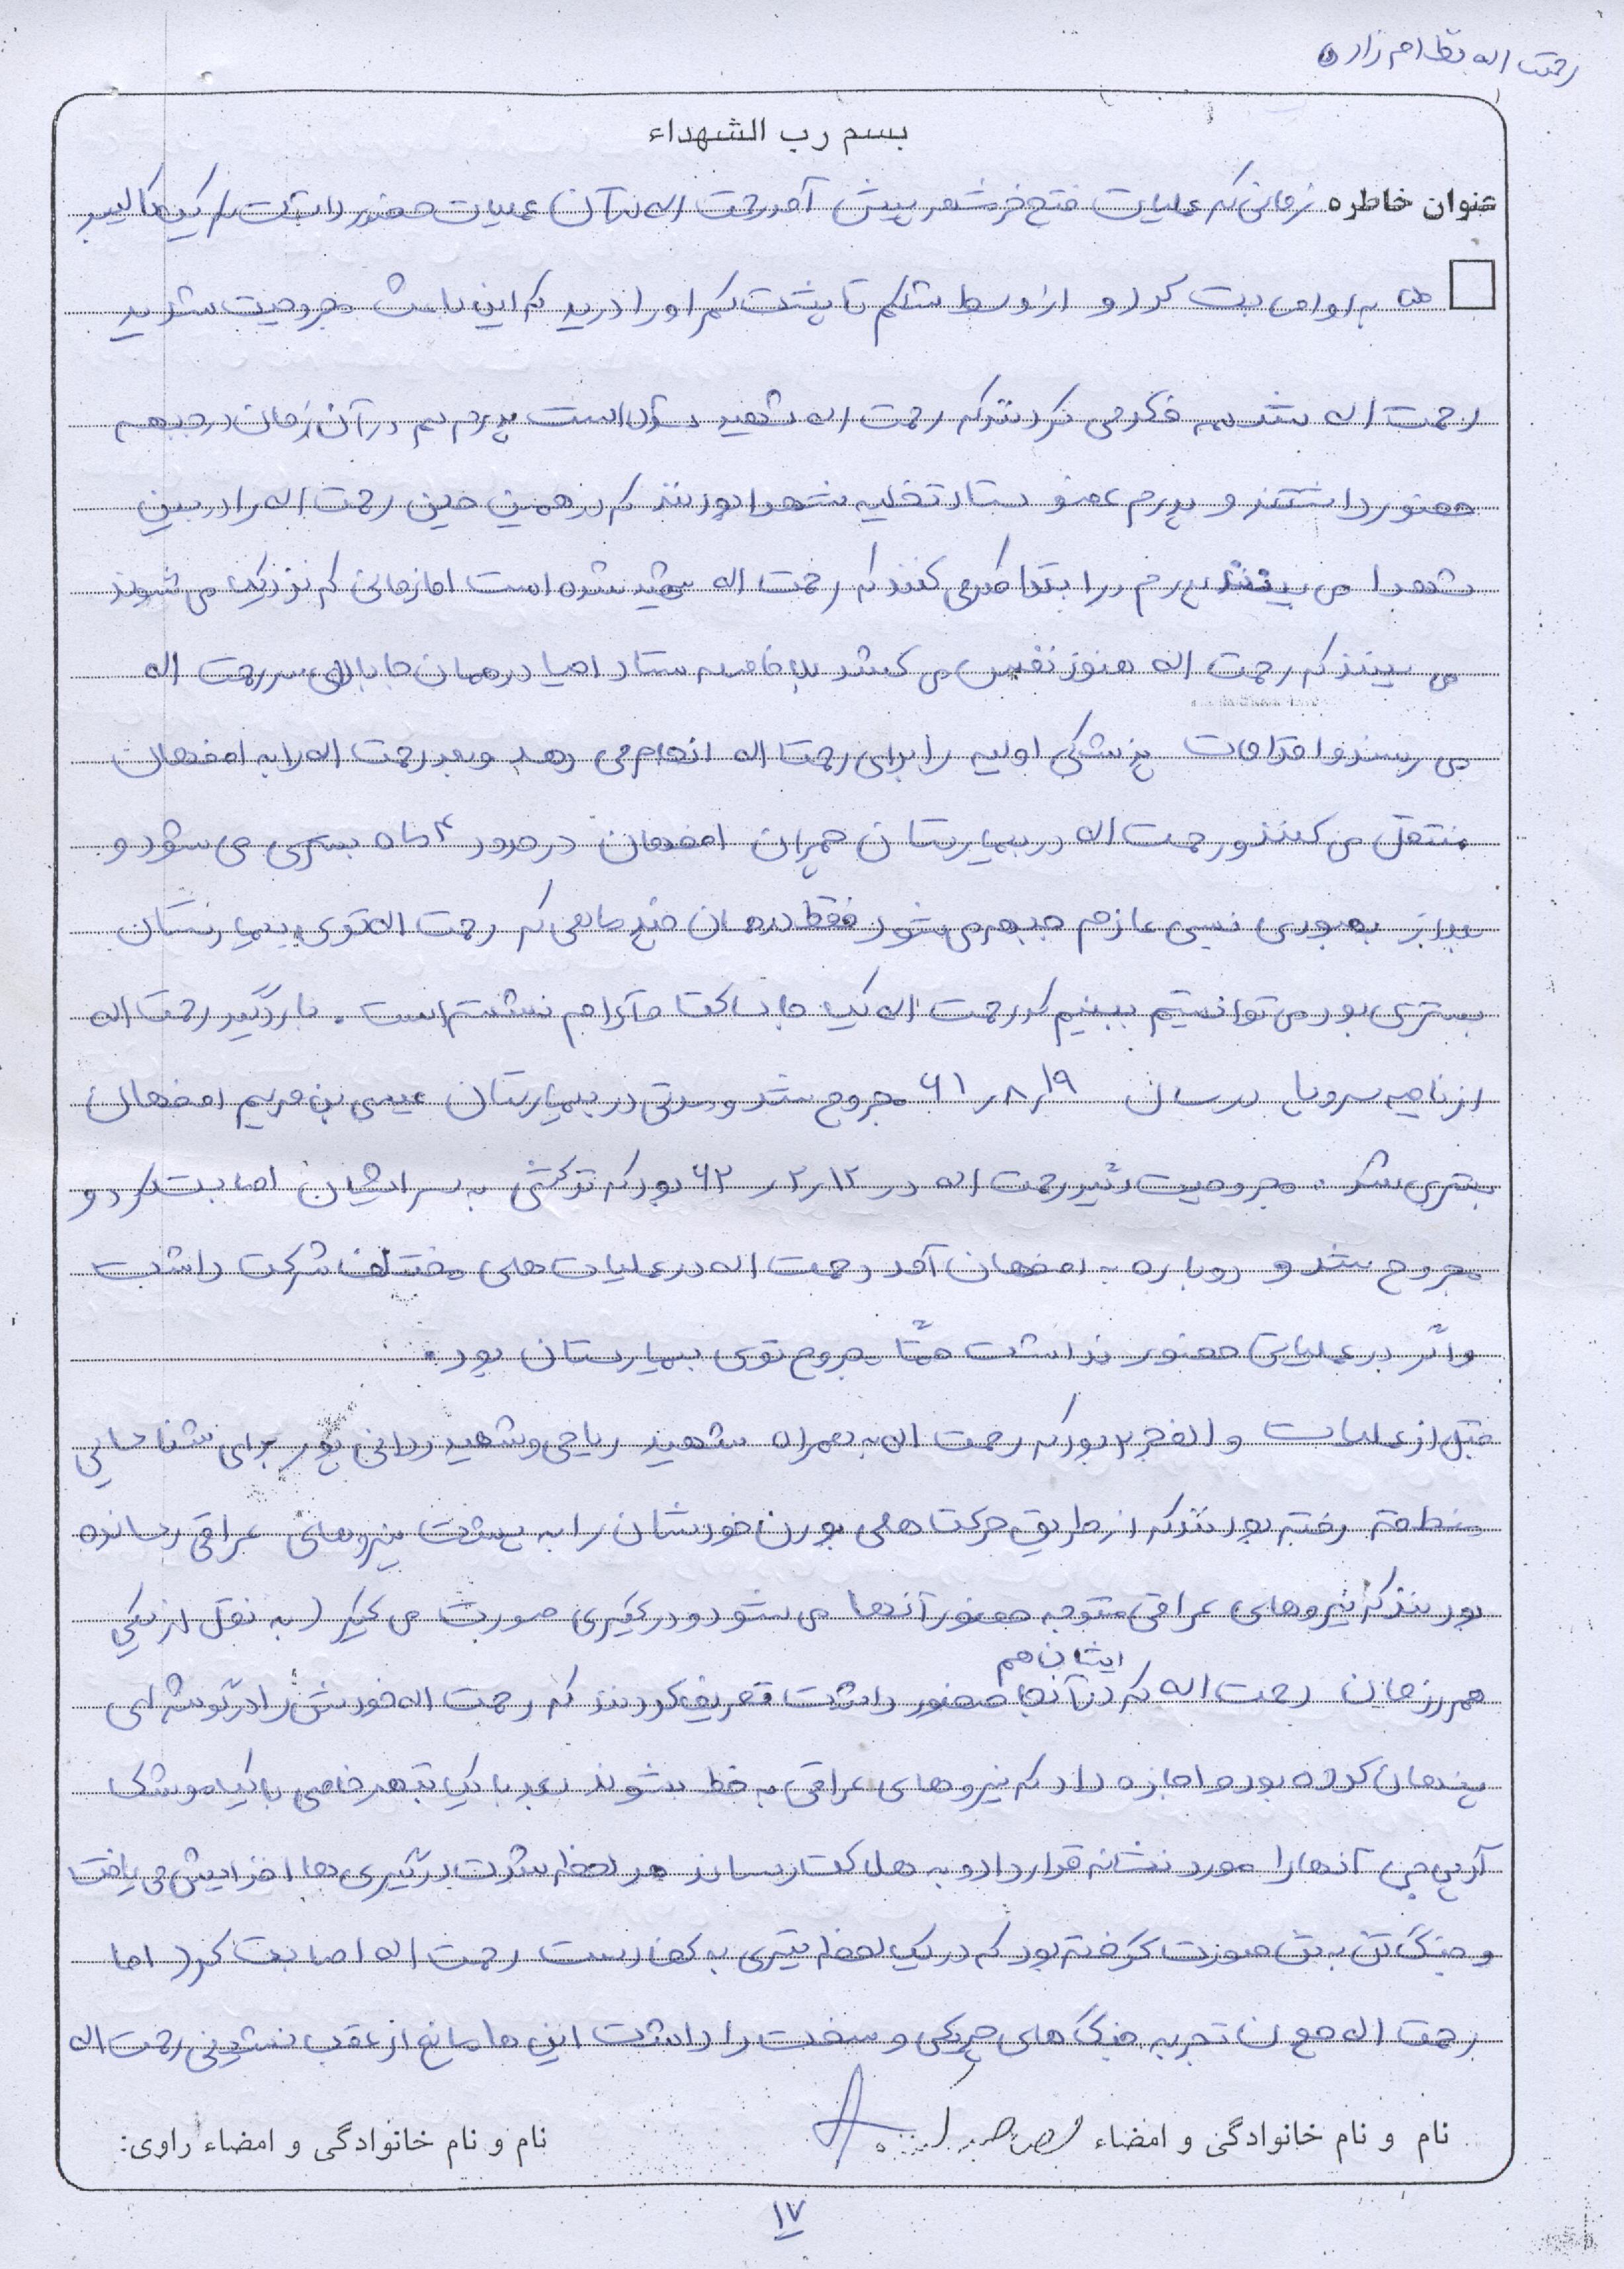 رحمت اله نظام زاده
بسم رب الشهداء
عنوان خاطره زمانی که عملیات فتح خرمشهر پیش آمد رحمت اله در آن عملیات حضور داشت که یک کالیبر
به او اصابت کرد و از وسط شکم تا پشت کمر او را درید که این باعث مجروحیت شدید
رحمت اله شد همه فکر می کردند که رحمت اله شهید شده است پدرم هم در آن زمان در جبهه
حضور داشتند و پدرم عضو ستاد تخلیه شهدا بودند که در همین حین رحمت اله را در بین
شهدا می بینند پدرم در ابتدا فکر می کنند که رحمت اله شهید شده است اما زمانی که نزدیک می شوند
می بینند که رحمت اله هنوز نفس می کشد بلافاصله ستاد احیا در همان جا بالای سر رحمت اله
می رسند و اقدامات پزشکی اولیه را برای رحمت اله انجام می دهد و بعد رحمت اله را به اصفهان
منتقل می کنند و رحمت اله در بیمارستان چمران اصفهان در حدود ۴ ماه بستری می شود و
بعد از بهبودی نسبی عازم جبهه می شود فقط در همان چند ماهی که رحمت اله توی بیمارستان
بستری بود می توانستیم ببینیم که رحمت اله یک جا ساکت و آرام نشسته است . بار دیگر رحمت اله
از ناحیه سر و پا در سال ۶۱٫۸٫۱۹ مجروح شد و مدتی در بیمارستان عیسی بن مریم اصفهان
بستری شد . مجروحیت دیگر رحمت اله در ۶۲٫۲٫۱۲ بود که ترکشی به سر ایشان اصابت کرد و
مجروح شد و دوباره به اصفهان آمد رحمت اله در عملیات های مختلف شرکت داشت
و اگر در عملیاتی حضور نداشت حتماً مجروح توی بیمارستان بود .
قبل از عملیات والفجر ۲ بود که رحمت اله به همراه شهید ریاحی و شهید ردانی پور برای شناسایی
منطقه رفته بودند که از طریق حرکت هایی بودن خودشان را به پشت نیروهای عراقی رسانده
بودند که نیروهای عراقی متوجه حضور آنها می شود و درگیری صورت می گیرد (به نقل از یکی
همرزمان رحمت اله که ایشان هم در آنجا حضور داشت تعریف کردند که رحمت اله خودش را در گوشه ای
پنهان کرده بود و اجازه داد که نیروهای عراقی به خط بشوند بعد با یک تبهر خاصی با یک موشک
آرپی جی آنها را مورد نشانه قرار داد و به هلاکت رساند هر لحظه شدت درگیری ها افزایش می یافت
و جنگ تن به تن صورت گرفته بود که در یک لحظه تیری به کف دست رحمت اله اصابت کرد اما
رحمت اله چون تجربه جنگ های چریکی و سخت را داشت این ها مانع از عقب نشینی رحمت اله
نام و نام خانوادگی و امضاء
نام و نام خانوادگی و امضاء راوی:
۱۷